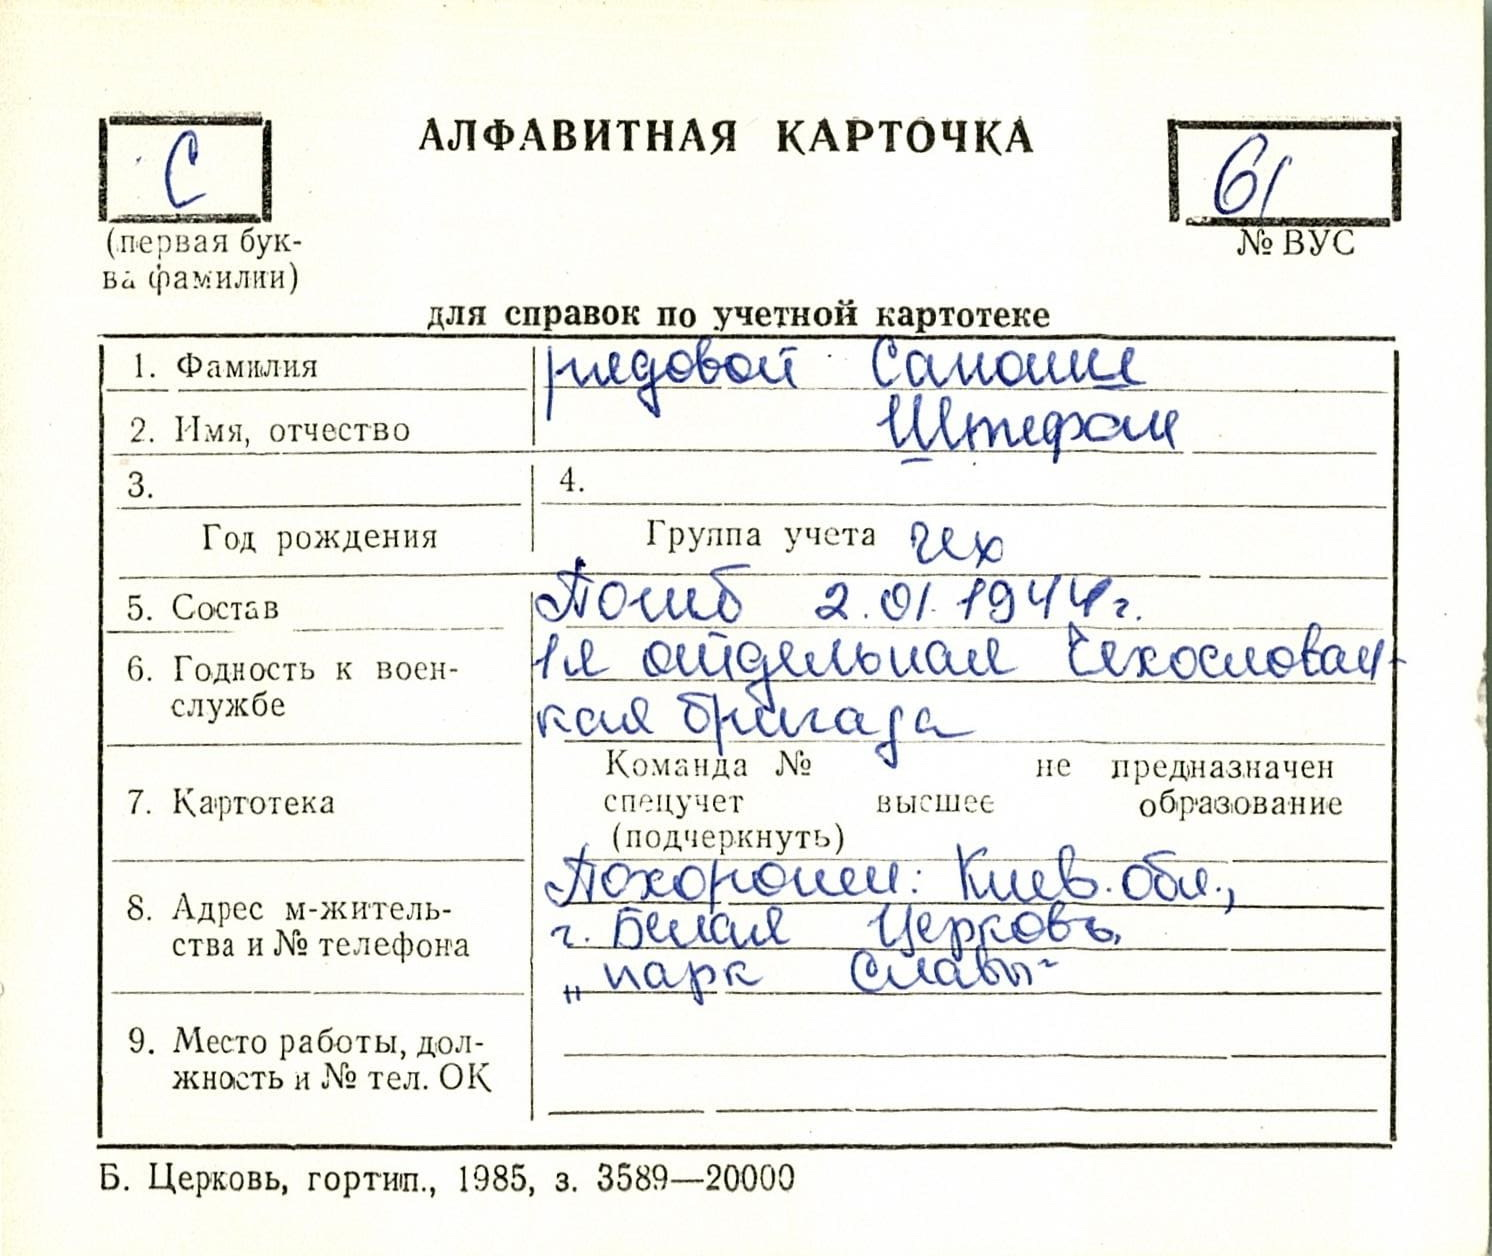 С
АЛФАВИТНАЯ КАРТОЧКА
61
(первая бук-
ва фамилии)
№ ВУС
для справок по учетной картотеке
1. Фамилия рядовой Саноши
2. Имя, отчество Штефан
3. 4.
Год рождения Группа учета чех
5. Состав Погиб 2.01.1944г.
6. Годность к воен- 1я отдельная Чехословац-
службе кая бригада
Команда № не предназначен
7. Картотека спецучет высшее образование
(подчеркнуть)
Похоронен: Киев. обл.,
8. Адрес м-житель- г. Белая Церковь,
ства и № телефона „парк Славы"
9. Место работы, дол-
жность и № тел. ОК
Б. Церковь, гортип., 1985, з. 3589—20000